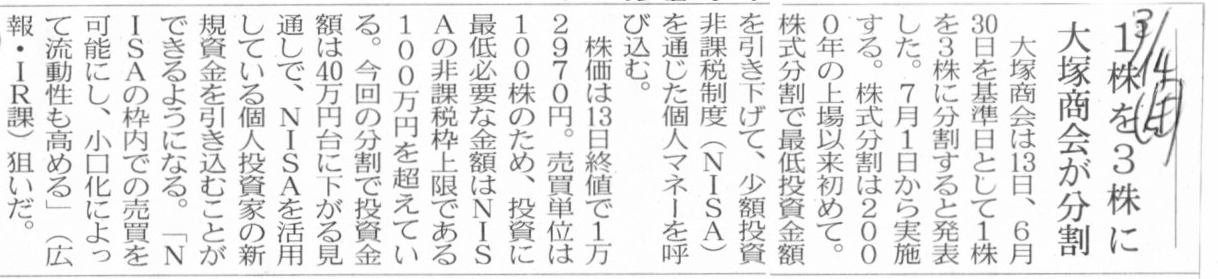 3/14
1株を3株に
大塚商会が分割
大塚商会は13日、6月
30日を基準日として1株
を3株に分割すると発表
した。7月1日から実施
する。株式分割は200
0年の上場以来初めて。
株式分割で最低投資金額
を引き下げて、少額投資
非課税制度(NISA)
を通じた個人マネーを呼
び込む。
株価は13日終値で1万
2970円。売買単位は
100株のため、投資に
最低必要な金額はNIS
Aの非課税枠上限である
100万円を超えてい
る。今回の分割で投資金
額は40万円台に下がる見
通しで、NISAを活用
している個人投資家の新
規資金を引き込むことが
できるようになる。「N
ISAの枠内での売買を
可能にし、小口化によっ
て流動性も高める」(広
報・IR課)狙いだ。